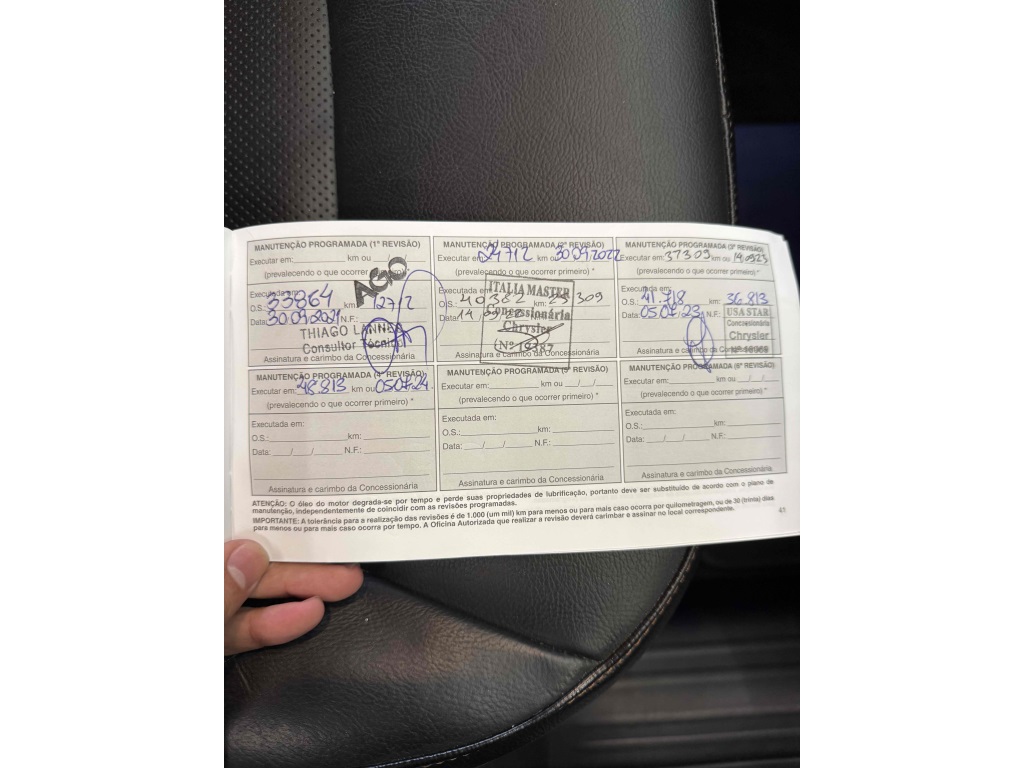 MANUTENÇÃO PROGRAMADA (1ª REVISÃO)
Executar em: km ou __/__/__
(prevalecendo o que ocorrer primeiro) *
AGO
Executada em:
O.S.: 33864 km: 12712
Data: 30.09.2021 N.F.:
THIAGO LANNES
Consultor Técnico
Assinatura e carimbo da Concessionária
MANUTENÇÃO PROGRAMADA (2ª REVISÃO)
Executar em: 24712 km ou 30.09.2022
(prevalecendo o que ocorrer primeiro) *
Executada em:
O.S.: 40382 km: 25309
Data: 14/09/22 N.F.:
ITALIA MASTER
Concessionária
Chrysler
(Nº 19387
Assinatura e carimbo da Concessionária
MANUTENÇÃO PROGRAMADA (3ª REVISÃO)
Executar em: 37309 km ou 14/09/23
(prevalecendo o que ocorrer primeiro) *
Executada em:
O.S.: 41.718 km: 36.813
Data: 05.07.23 N.F.:
USA STAR
Concessionária
Chrysler
Assinatura e carimbo da Concessionária
MANUTENÇÃO PROGRAMADA (4ª REVISÃO)
Executar em: 48.813 km ou 05.07.24
(prevalecendo o que ocorrer primeiro) *
Executada em:
O.S.: km:
Data: __/__/__ N.F.:
Assinatura e carimbo da Concessionária
MANUTENÇÃO PROGRAMADA (5ª REVISÃO)
Executar em: km ou __/__/__
(prevalecendo o que ocorrer primeiro) *
Executada em:
O.S.: km:
Data: __/__/__ N.F.:
Assinatura e carimbo da Concessionária
MANUTENÇÃO PROGRAMADA (6ª REVISÃO)
Executar em: km ou __/__/__
(prevalecendo o que ocorrer primeiro) *
Executada em:
O.S.: km:
Data: __/__/__ N.F.:
Assinatura e carimbo da Concessionária
ATENÇÃO: O óleo do motor degrada-se por tempo e perde suas propriedades de lubrificação, portanto deve ser substituído de acordo com o plano de
manutenção, independentemente de coincidir com as revisões programadas.
IMPORTANTE: A tolerância para a realização das revisões é de 1.000 (um mil) km para menos ou para mais caso ocorra por quilometragem, ou de 30 (trinta) dias
para menos ou para mais caso ocorra por tempo. A Oficina Autorizada que realizar a revisão deverá carimbar e assinar no local correspondente.
41